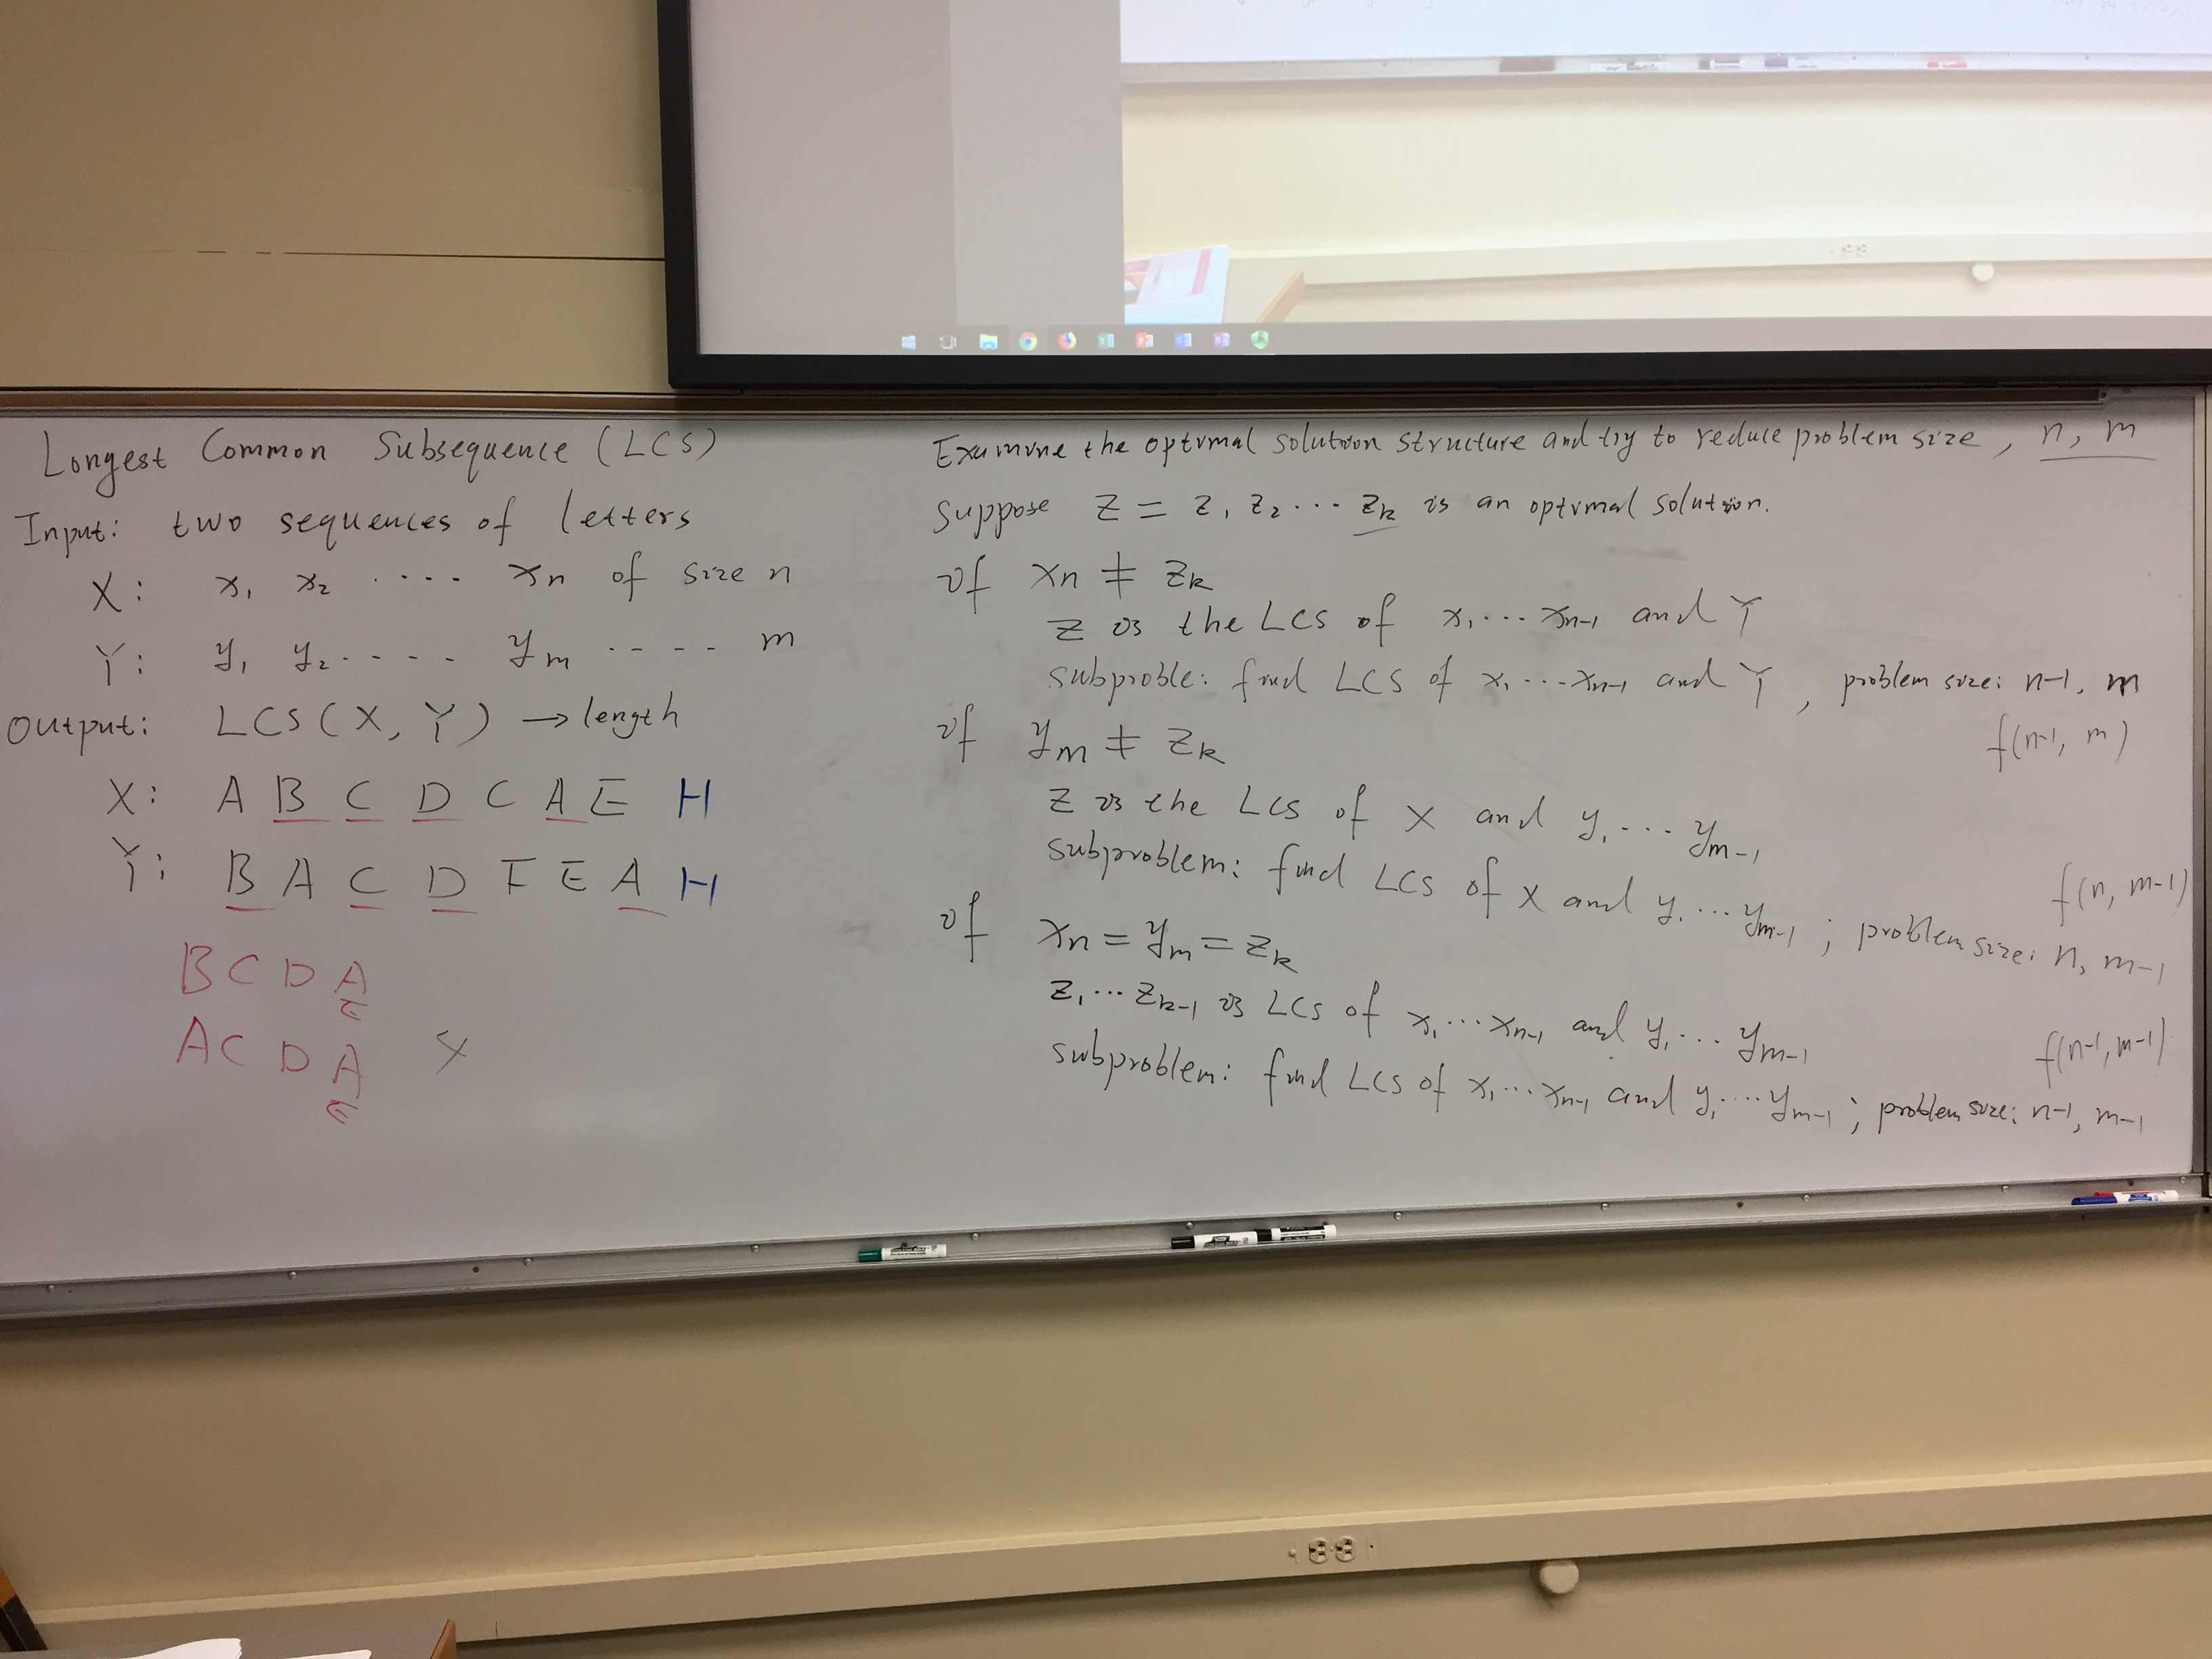 Longest Common Subsequence (LCS)
Input: two sequences of letters
X: x₁ x₂ .... xₙ of size n
Y: y₁ y₂ ..... yₘ ---- m
Output: LCS (X, Y) → length
X: A B C D C A E H
Y: B A C D F E A H
B C D A
E
A C D A
E
Examine the optimal solution structure and try to reduce problem size, n, m
Suppose Z = z₁ z₂ ... zₖ is an optimal solution.
if xₙ ≠ zₖ
Z is the LCS of x₁...xₙ₋₁ and Y
subproble: find LCS of x₁...xₙ₋₁ and Y, problem size: n-1, m
f(n-1, m)
if yₘ ≠ zₖ
Z is the LCS of X and y₁...yₘ₋₁
subproblem: find LCS of X and y₁...yₘ₋₁; problem size: n, m-1
f(n, m-1)
if xₙ = yₘ = zₖ
z₁...zₖ₋₁ is LCS of x₁...xₙ₋₁ and y₁...yₘ₋₁
f(n-1, m-1)
subproblem: find LCS of x₁...xₙ₋₁ and y₁....yₘ₋₁; problem size: n-1, m-1